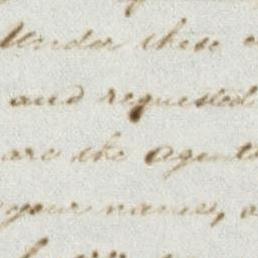 Under these
and requested
are the agents
your names,